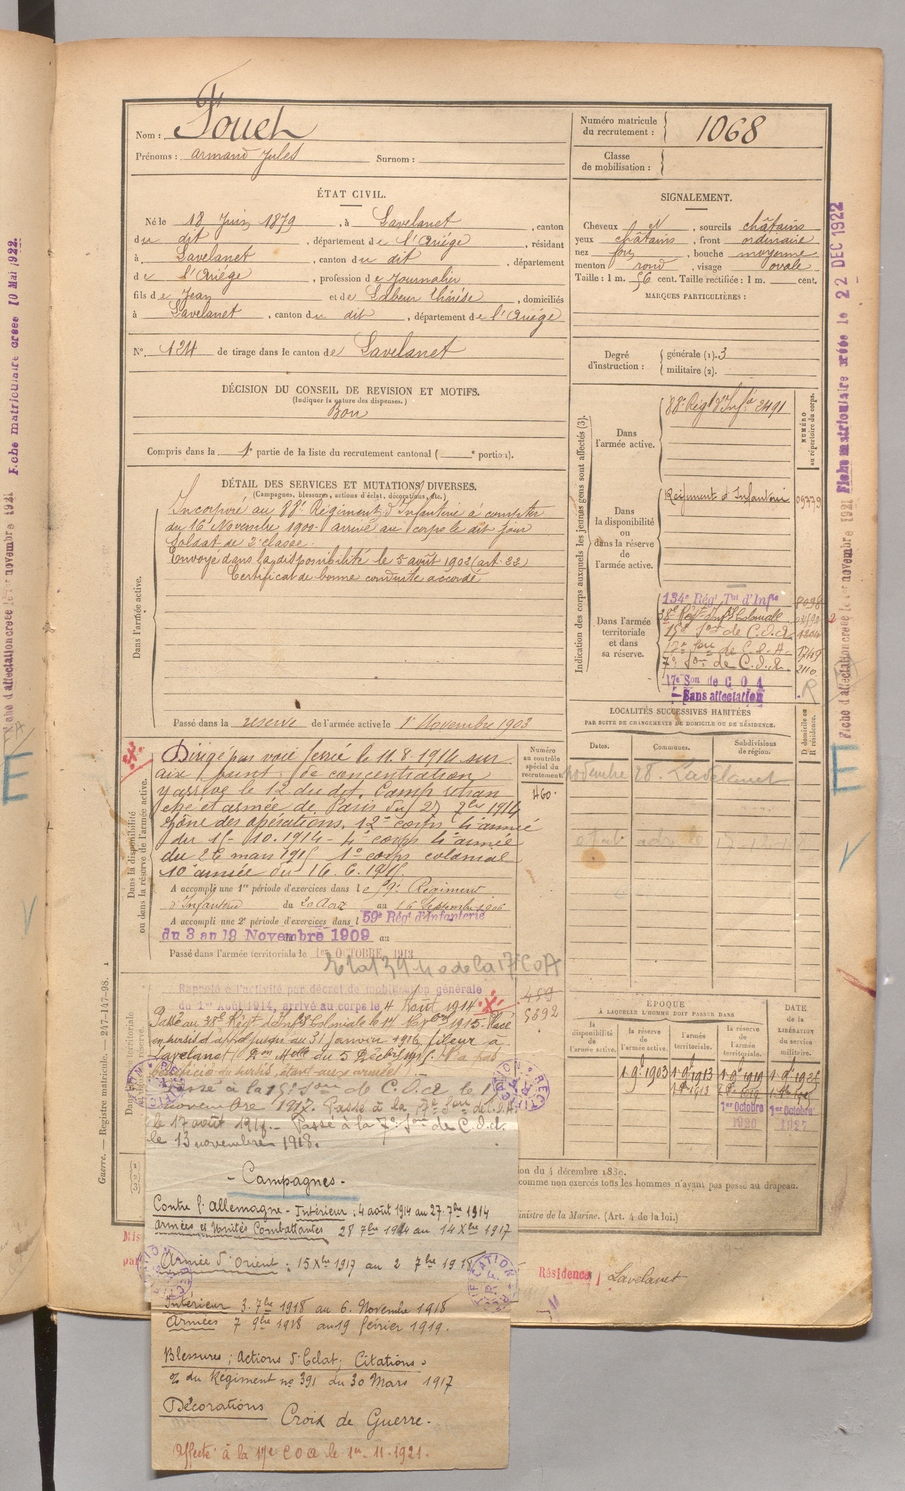 Nom : Fouet
Prénoms : armand Jules Surnom :
Numéro matricule du recrutement : 1068
Classe de mobilisation :
ÉTAT CIVIL.
Né le 18 Juin 1879, à Lavelanet, canton
du dit, département de l'Ariège, résidant
à Lavelanet, canton du dit, département
de l'Ariège, profession de Journalier
fils de Jean et de Thérèse, domiciliés
à Lavelanet, canton du dit, département de l'Ariège
N° 124 de tirage dans le canton de Lavelanet
SIGNALEMENT.
Cheveux , sourcils châtains
yeux châtains, front ordinaire
nez , bouche moyenne
menton rond, visage ovale
Taille : 1 m. 56 cent. Taille rectifiée : 1 m. cent.
MARQUES PARTICULIÈRES :
Degré d'instruction : générale (1). 3
militaire (2).
DÉCISION DU CONSEIL DE REVISION ET MOTIFS.
(Indiquer la nature des dispenses.)
Bon
Compris dans la 1e partie de la liste du recrutement cantonal ( e portion).
DÉTAIL DES SERVICES ET MUTATIONS DIVERSES.
(Campagnes, blessures, actions d'éclat, décorations, etc.)
Dans l'armée active.
Incorporé au 88e Régiment d'Infanterie à compter
du 16 Novembre 1900 arrivé au corps le dit jour
Soldat de 2e classe
Envoyé dans la disponibilité le 5 août 1903 (art. 33)
Certificat de bonne conduite accordé
Passé dans la réserve de l'armée active le 1er Novembre 1903
Indication des corps auxquels les jeunes gens sont affectés (3).
NUMÉRO au répertoire du corps.
Dans l'armée active. 88e Régt d'Infie 2491
Dans la disponibilité ou dans la réserve de l'armée active. Régiment d'Infanterie
Dans l'armée territoriale et dans sa réserve.
134e Régt Tal d'Infie
38e Régt Infie Coloniale
15e Son de C.O.A.
17e Son de C.O.A.
7e Son de C.O.A.
17e Son de C O A
Sans affectation
LOCALITÉS SUCCESSIVES HABITÉES
PAR SUITE DE CHANGEMENTS DE DOMICILE OU DE RÉSIDENCE.
Dates. Communes. Subdivisions de région.
D domicile ou R résidence.
28. Lavelanet
Dans la disponibilité ou dans la réserve de l'armée active.
Numéro au contrôle spécial du recrutement
460
Dirigé par voie ferrée le 11.8.1914 sur
aix point de concentration
y arrivé le 12 du dit. Camp retran
ché et armée de Paris du 27 7bre 1914
zône des opérations. 12e corps 4e armée
du 15.10.1914 - 4e corps 4e armée
du 26 mars 1915 1er corps colonial
10e armée du 16.6.1915
A accompli une 1re période d'exercices dans le 59e Régiment
d'Infanterie du 20 Août au 16 Septembre 1906
A accompli une 2e période d'exercices dans le 59e Régt d'Infanterie
du 3 au 19 Novembre 1909 au
Passé dans l'armée territoriale le 1er OCTOBRE 1913
Rappelé à l'activité par décret de mobilisation générale
du 1er Août 1914, arrivé au corps le 4 Août 1914
Passé au 38e Régt d'Infie Coloniale le 14 1915. Placé
en sursis d'appel jusqu'au 31 Janvier 1916, fileur à
Lavelanet
bénéficié du sursis, étant aux armées
Passé à la 15e Son de C.O.A. le 1er
novembre 1917. Passé à la 17e Son de C.O.A.
le 17 août 1918. Passé à la 7e Son de C.O.A.
le 13 novembre 1918.
489
5892
ÉPOQUE
À LAQUELLE L'HOMME DOIT PASSER DANS
DATE de la LIBÉRATION du service militaire.
la disponibilité de l'armée active. la réserve de l'armée active. l'armée territoriale. la réserve de l'armée territoriale.
1.9.1903 1.9.1913 1.9.1919
1er Octobre 1920 1er Octobre 1927
ion du 4 décembre 1830.
comme non exercés tous les hommes n'ayant pas passé au drapeau.
inistre de la Marine. (Art. 4 de la loi.)
- Campagnes -
Contre l'Allemagne - Intérieur : 4 août 1914 au 27 7bre 1914
armées et Unités Combattantes 28 7bre 1914 au 14 Xbre 1917
Armée d'Orient : 15 Xbre 1917 au 2 7bre 1918
Intérieur 3. 7bre 1918 au 6. Novembre 1918
Armées 7 9bre 1918 au 19 février 1919.
Blessures ; Actions d'Eclat, Citations.
% du Régiment no 391 du 30 Mars 1917
Décorations Croix de Guerre.
Affecté à la 17e C O A le 1er 11.1921.
Résidence Lavelanet
Guerre. — Registre matricule. — 247-147-98.
Fiche matriculaire créée le 22 DEC 1922
Fiche d'affectation créée le 1er novembre 1921
Fiche matriculaire créée 10 Mai 1922.
Fiche d'affectation créée le 1er novembre 1921